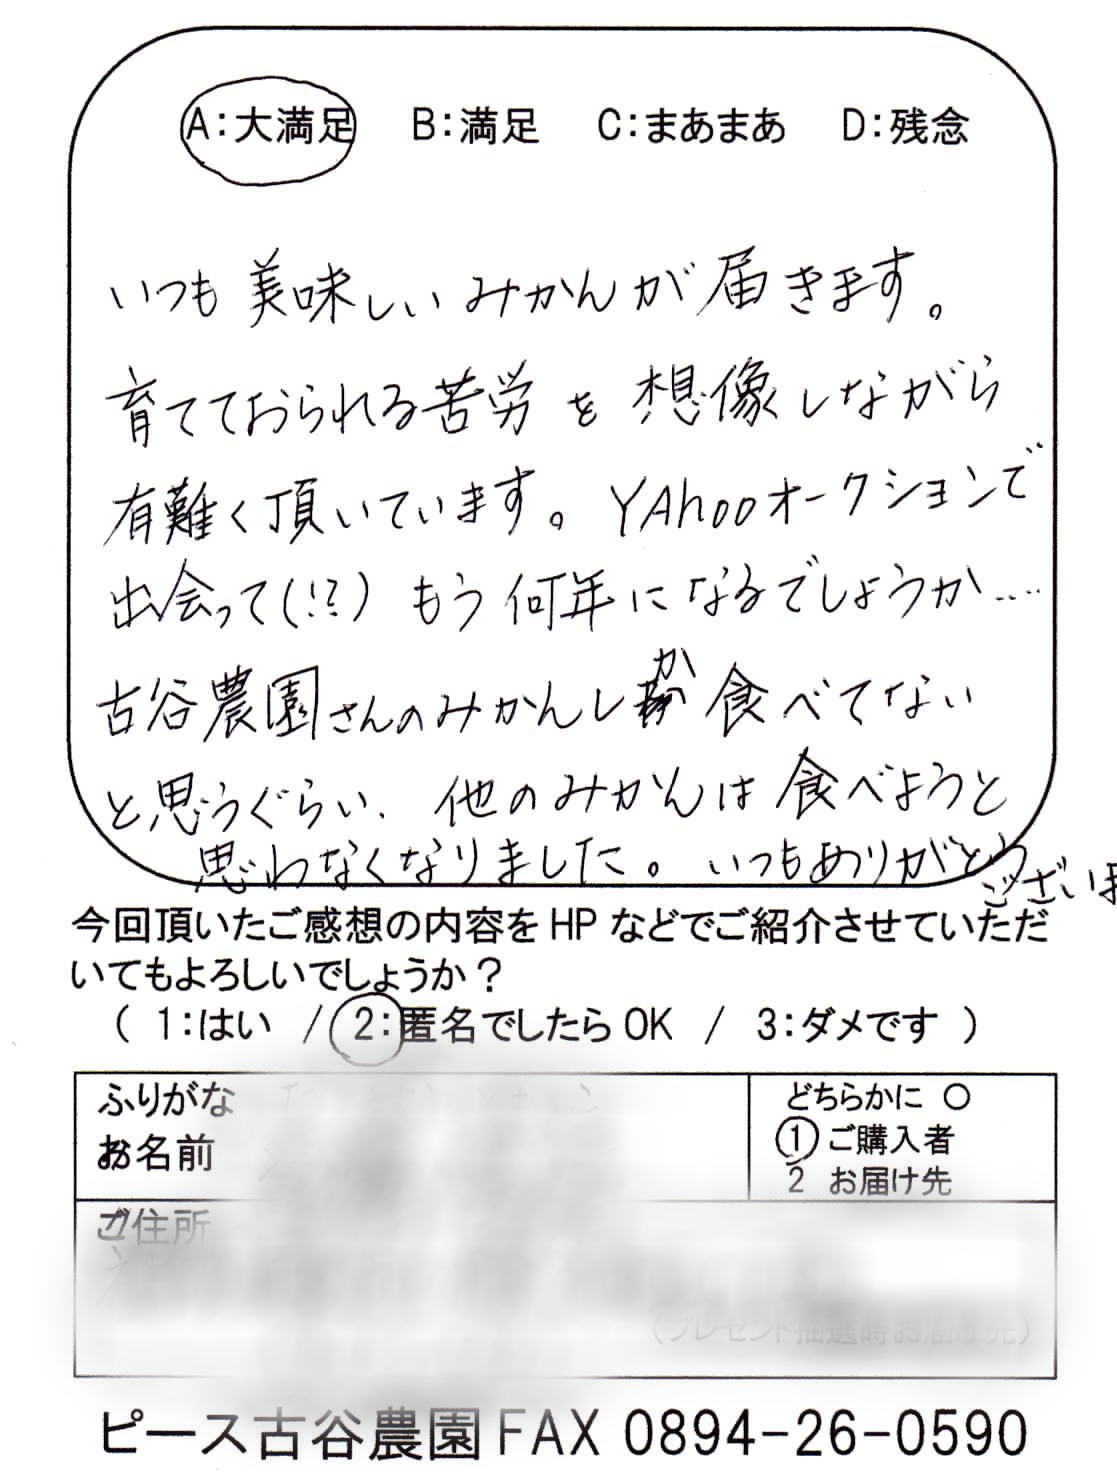 A:大満足 B:満足 C:まあまあ D:残念
いつも美味しいみかんが届きます。
育てておられる苦労を想像しながら
有難く頂いています。YAhooオークションで
出会って(!?)もう何年になるでしょうか....
古谷農園さんのみかんしか食べてない
と思うぐらい、他のみかんは食べようと
思わなくなりました。いつもありがとう
ございま
今回頂いたご感想の内容をHPなどでご紹介させていただ
いてもよろしいでしょうか？
( 1:はい / 2:匿名でしたらOK / 3:ダメです )
ふりがな
お名前
どちらかに ○
1 ご購入者
2 お届け先
ご住所
(プレゼント抽選時お届け先)
ピース古谷農園 FAX 0894-26-0590